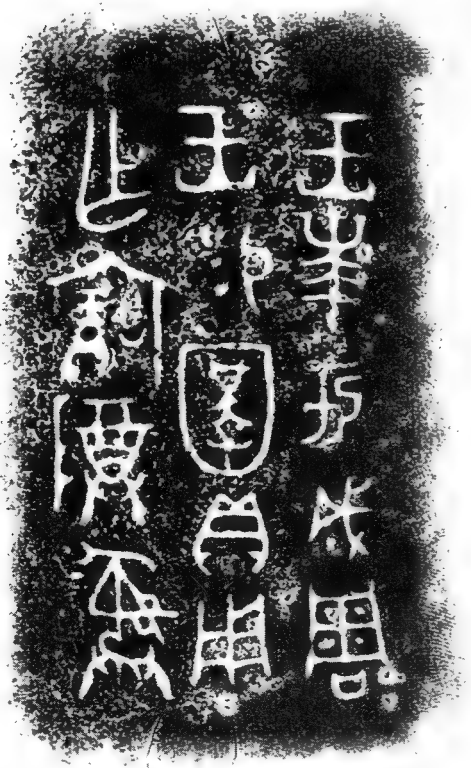 王𠦪于成周
王易圉貝用
乍寶尊彝